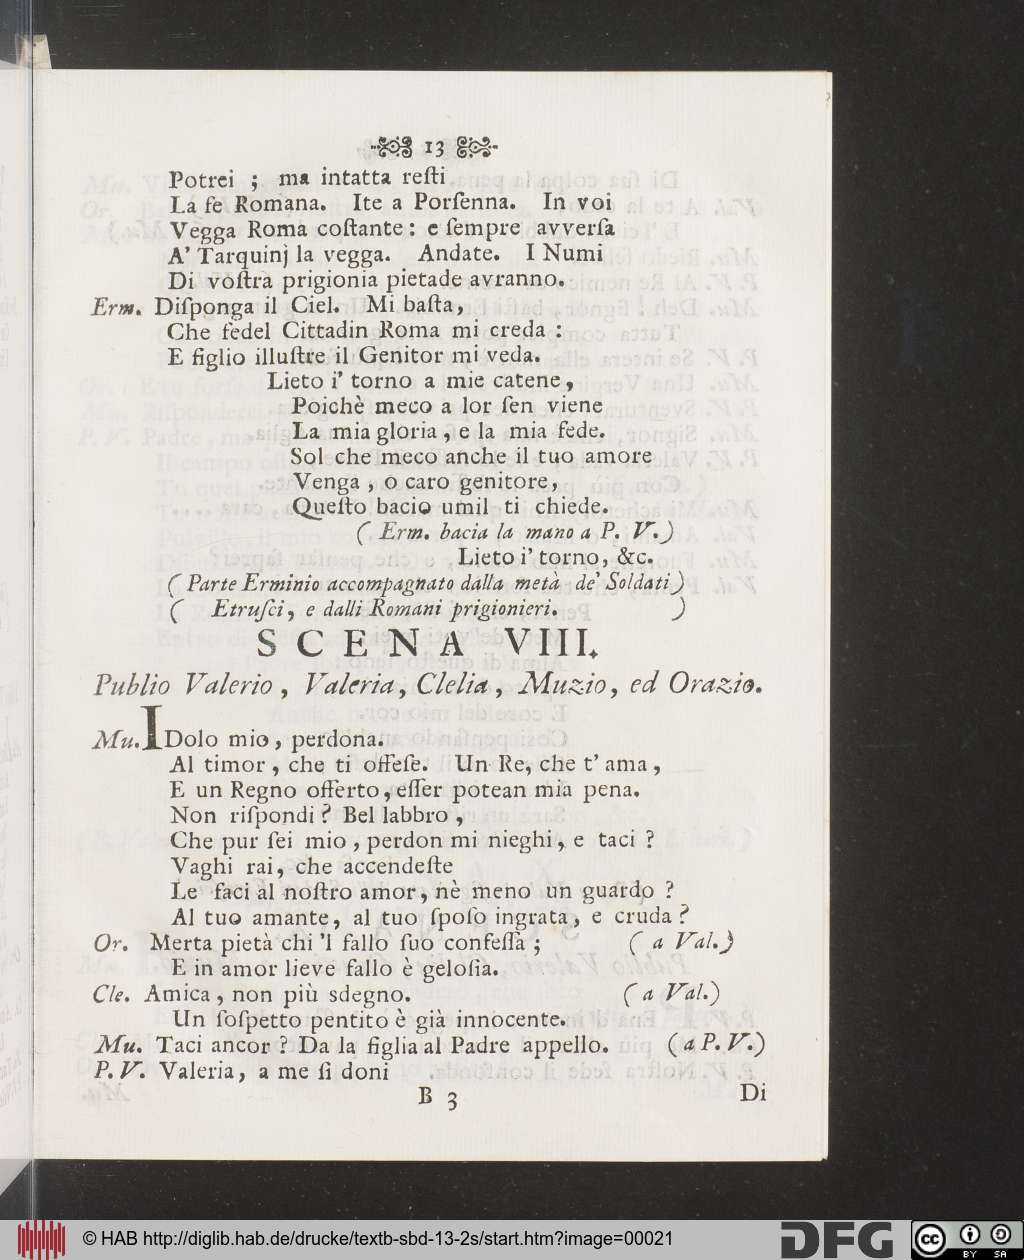 13
Potrei ; ma intatta reſti
La fe Romana. Ite a Porſenna. In voi
Vegga Roma coſtante : e ſempre avverſa
A' Tarquinj la vegga. Andate. I Numi
Di voſtra prigionia pietade avranno.
Erm. Diſponga il Ciel. Mi baſta,
Che fedel Cittadin Roma mi creda :
E figlio illuſtre il Genitor mi veda.
Lieto i' torno a mie catene,
Poichè meco a lor ſen viene
La mia gloria, e la mia fede.
Sol che meco anche il tuo amore
Venga, o caro genitore,
Queſto bacio umil ti chiede.
( Erm. bacia la mano a P. V.)
Lieto i' torno, &c.
( Parte Erminio accompagnato dalla metà de' Soldati )
( Etruſci, e dalli Romani prigionieri. )
SCENA VIII.
Publio Valerio, Valeria, Clelia, Muzio, ed Orazio.
Mu. IDolo mio, perdona.
Al timor, che ti offeſe. Un Re, che t' ama,
E un Regno offerto, eſſer potean mia pena.
Non riſpondi ? Bel labbro,
Che pur ſei mio, perdon mi nieghi, e taci ?
Vaghi rai, che accendeſte
Le faci al noſtro amor, nè meno un guardo ?
Al tuo amante, al tuo ſpoſo ingrata, e cruda ?
Or. Merta pietà chi 'l fallo ſuo confeſſa ; ( a Val.)
E in amor lieve fallo è geloſia.
Cle. Amica, non più sdegno. ( a Val.)
Un ſoſpetto pentito è già innocente.
Mu. Taci ancor ? Da la figlia al Padre appello. ( a P. V.)
P. V. Valeria, a me ſi doni
B 3 Di
© HAB http://diglib.hab.de/drucke/textb-sbd-13-2s/start.htm?image=00021
DFG
cc BY SA